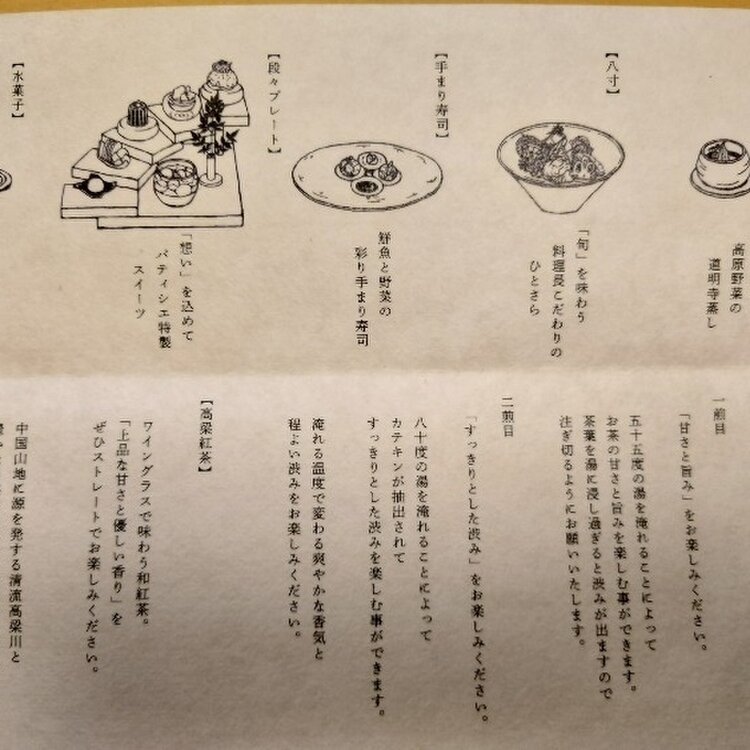 高原野菜の
道明寺蒸し
【八寸】
「旬」を味わう
料理長こだわりの
ひとさら
【手まり寿司】
鮮魚と野菜の
彩り手まり寿司
【段々プレート】
「想い」を込めて
パティシエ特製
スイーツ
【水菓子】
一煎目
「甘さと旨み」をお楽しみください。
五十五度の湯を淹れることによって
お茶の甘さと旨みを楽しむ事ができます。
茶葉を湯に浸し過ぎると渋みが出ますので
注ぎ切るようにお願いいたします。
二煎目
「すっきりとした渋み」をお楽しみください。
八十度の湯を淹れることによって
カテキンが抽出されて
すっきりとした渋みを楽しむ事ができます。
淹れる温度で変わる爽やかな香気と
程よい渋みをお楽しみください。
【高梁紅茶】
ワイングラスで味わう和紅茶。
「上品な甘さと優しい香り」を
ぜひストレートでお楽しみください。
中国山地に源を発する清流高梁川と